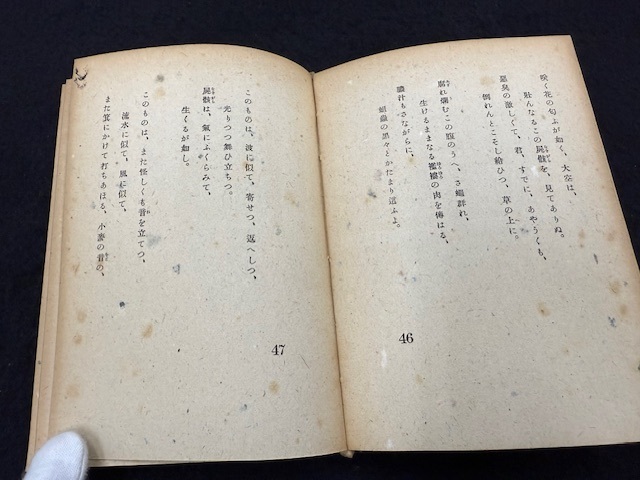 咲く花の匂ふが如く、大空は、
壯んなるこの屍骸を、見てありぬ。
惡臭の激しくて、君、すでに、あやうくも、
倒れんとこそし給ひつ、草の上に。
腐れ爛むこの腹のうへ、さ蠅群れ、
生けるままなる襤褸の肉を傳はる、
膿汁もさながらに、
蛆蟲の黒々とかたまり這ふよ。
46
このものは、波に似て、寄せつ、返へしつ、
光りつつ舞ひ立ちつ。
屍骸は、氣にふくらみて、
生くるが如し。
このものは、また怪しくも音を立てつ、
流水に似て、風に似て、
また箕にかけて打ちあほる、小麥の音の、
47